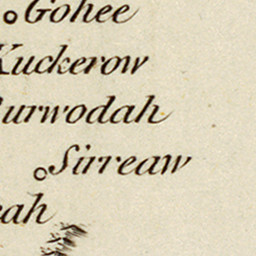 Gohee
Kuckerow
urwodah
Sirreaw
eah